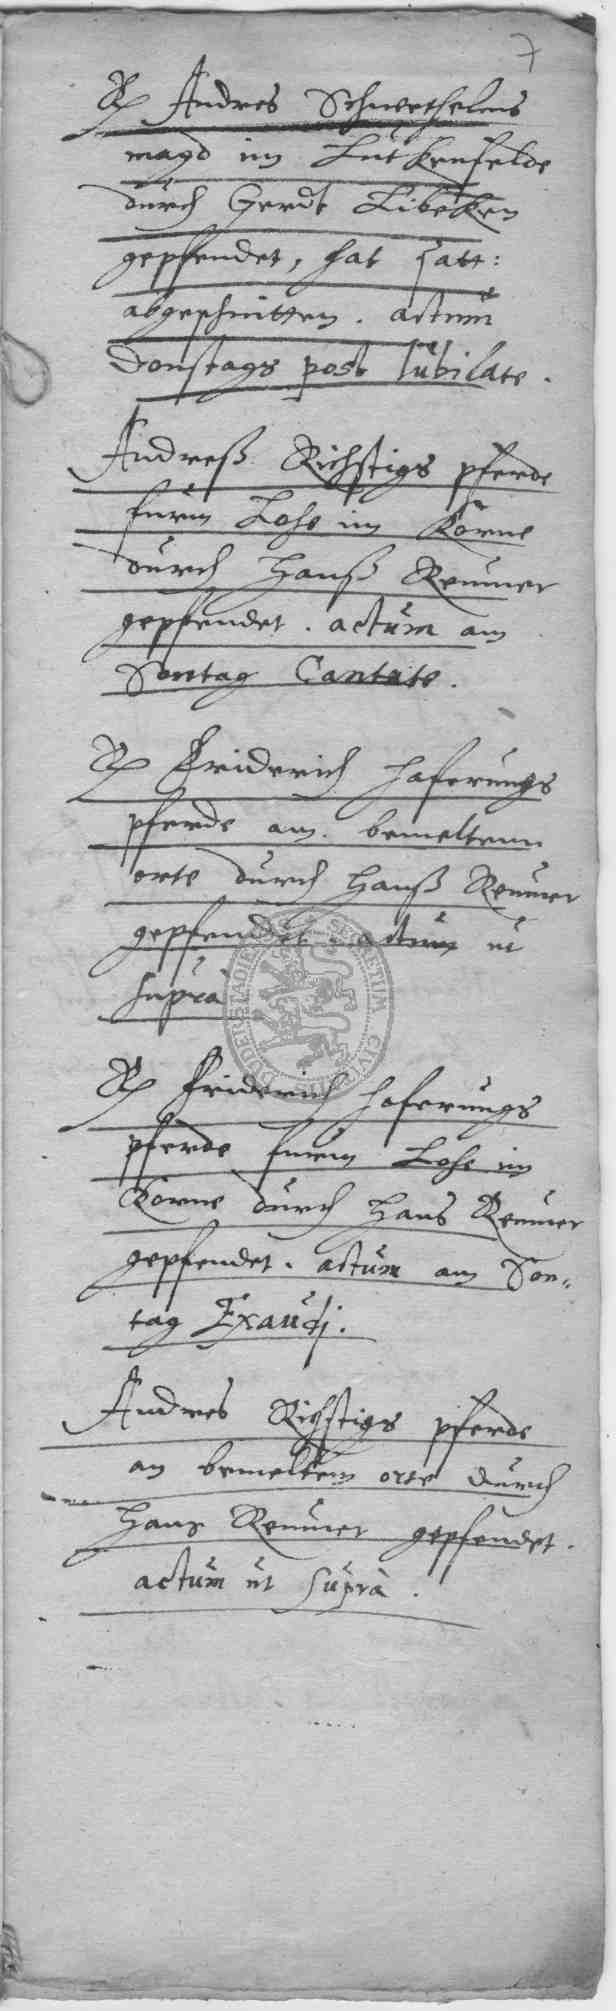 7
Andres Schwethelms
magd im Lütkenfelde
dürch Gerdt Libeken
gepfendet, hat satt:
abgeschnitten. actum
Donstags post Iubilate.
Andreß Richstigs pferde
fürm Lohe im Korne
dürch Hanß Remmer
gepfendet. actum am
Sontag Cantate.
Friderich Haferungs
pferde am bemeltenn
orte dürch Hanß Remmer
gepfendet. actum ut
supra
Friderich Haferungs
pferde fürm Lohe im
Korne dürch Hans Remmer
gepfendet. actum am Son-
tag Exaudj.
Andres Richstigs pferde
an bemeltem orte dürch
Hans Remmer gepfendet.
actum ut suprà.
SECRETUM CIVI DUDERSTADIE